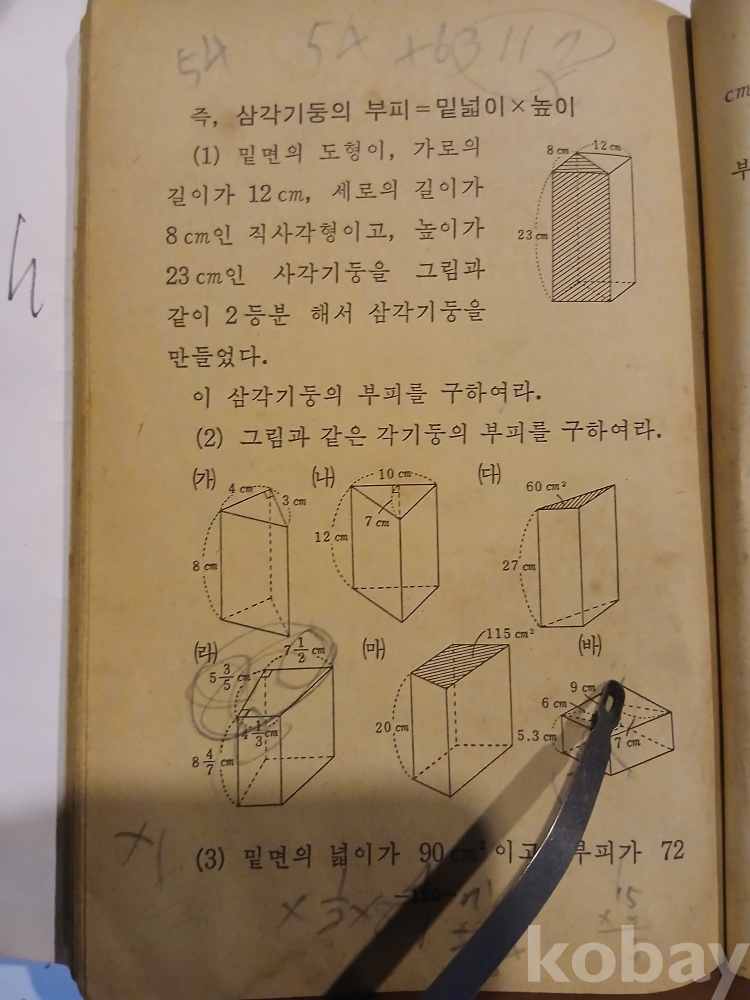 54 54 +63 112
즉, 삼각기둥의 부피=밑넓이×높이
(1) 밑면의 도형이, 가로의
길이가 12cm, 세로의 길이가
8cm인 직사각형이고, 높이가
23cm인 사각기둥을 그림과
같이 2등분 해서 삼각기둥을
만들었다.
8cm 12cm
23cm
이 삼각기둥의 부피를 구하여라.
(2) 그림과 같은 각기둥의 부피를 구하여라.
(가) 4cm 3cm
8cm
(나) 10cm
7cm
12cm
(다) 60cm²
27cm
(라) 7 1/2 cm
5 3/5 cm
4 1/3 cm
8 4/7 cm
(마) 115cm²
20cm
(바) 9cm
6cm
5.3cm 7cm
(3) 밑면의 넓이가 90cm²이고 부피가 72
cm
부
kobay